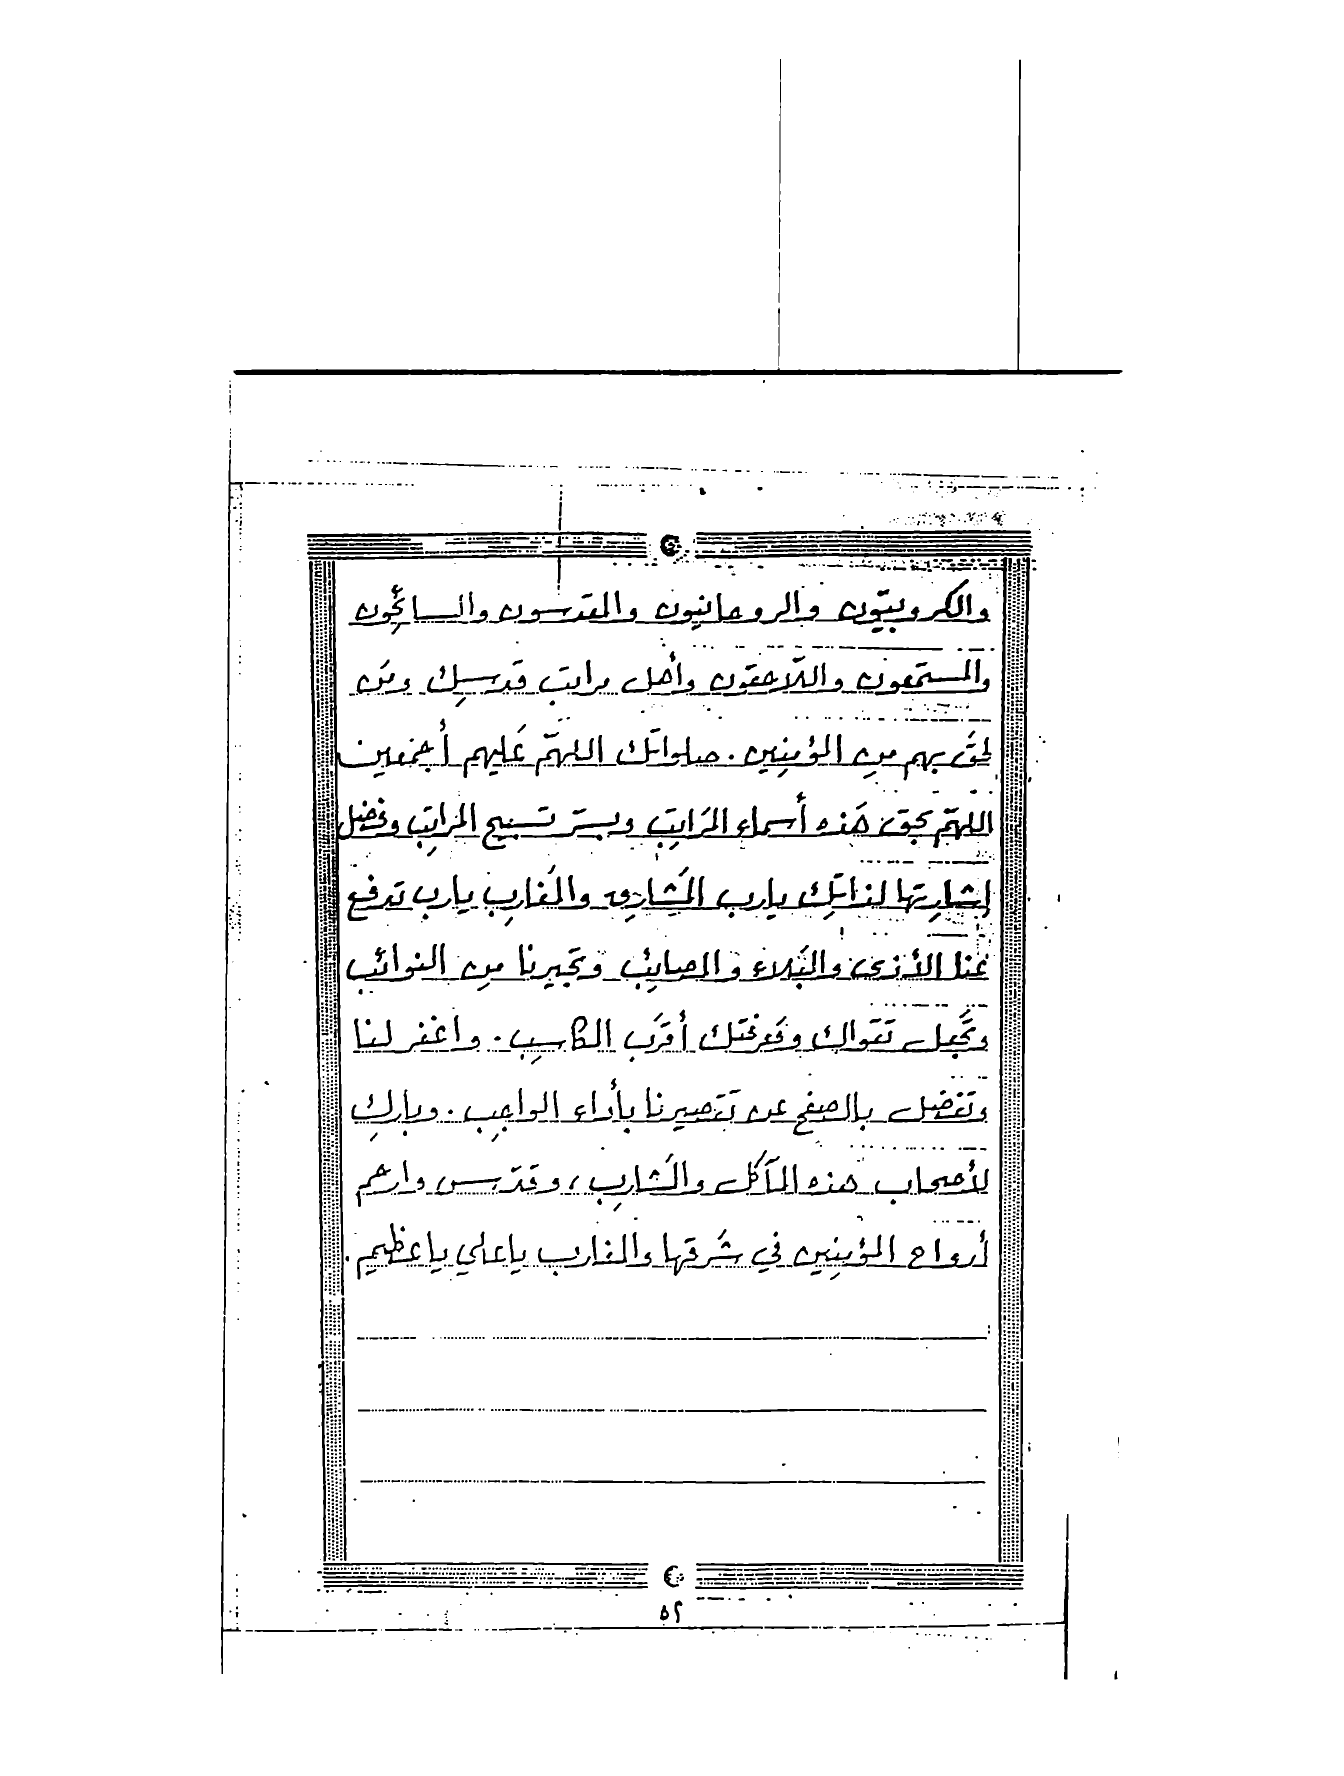 والكروبيّون والروحانيون والمقدسون والسائحُون
والمستمعون واللّاحقون وأهل مراتب قدسِك ومَن
لحقَ بهم مِن المؤمنِين . صلواتك اللهمّ عَليهم أجمَعين
اللهمّ بحق هَذه أسماء المرَاتِب وبسرّ تسبيح المراتِب وفضل
إشارتها لذاتِك يارب المشَارِق والمغَارِب يارب تدفع
عَنا الأذى والبَلاء والمصايب وتجيرنا مِن النوائب
وتجَعل تقَواك ومَعرفتك أقرَب المكاسِب . واغفر لنا
وتَفضل بالصفح عن تقَصيرنا بأداء الواجِب . وبارِك
لأصحاب هذه المآكل والمشَارِب ، وقدّس وارحم
أرواح المؤمنِين في مشَرقها والمغارب ياعلي ياعظيم .
٥٢